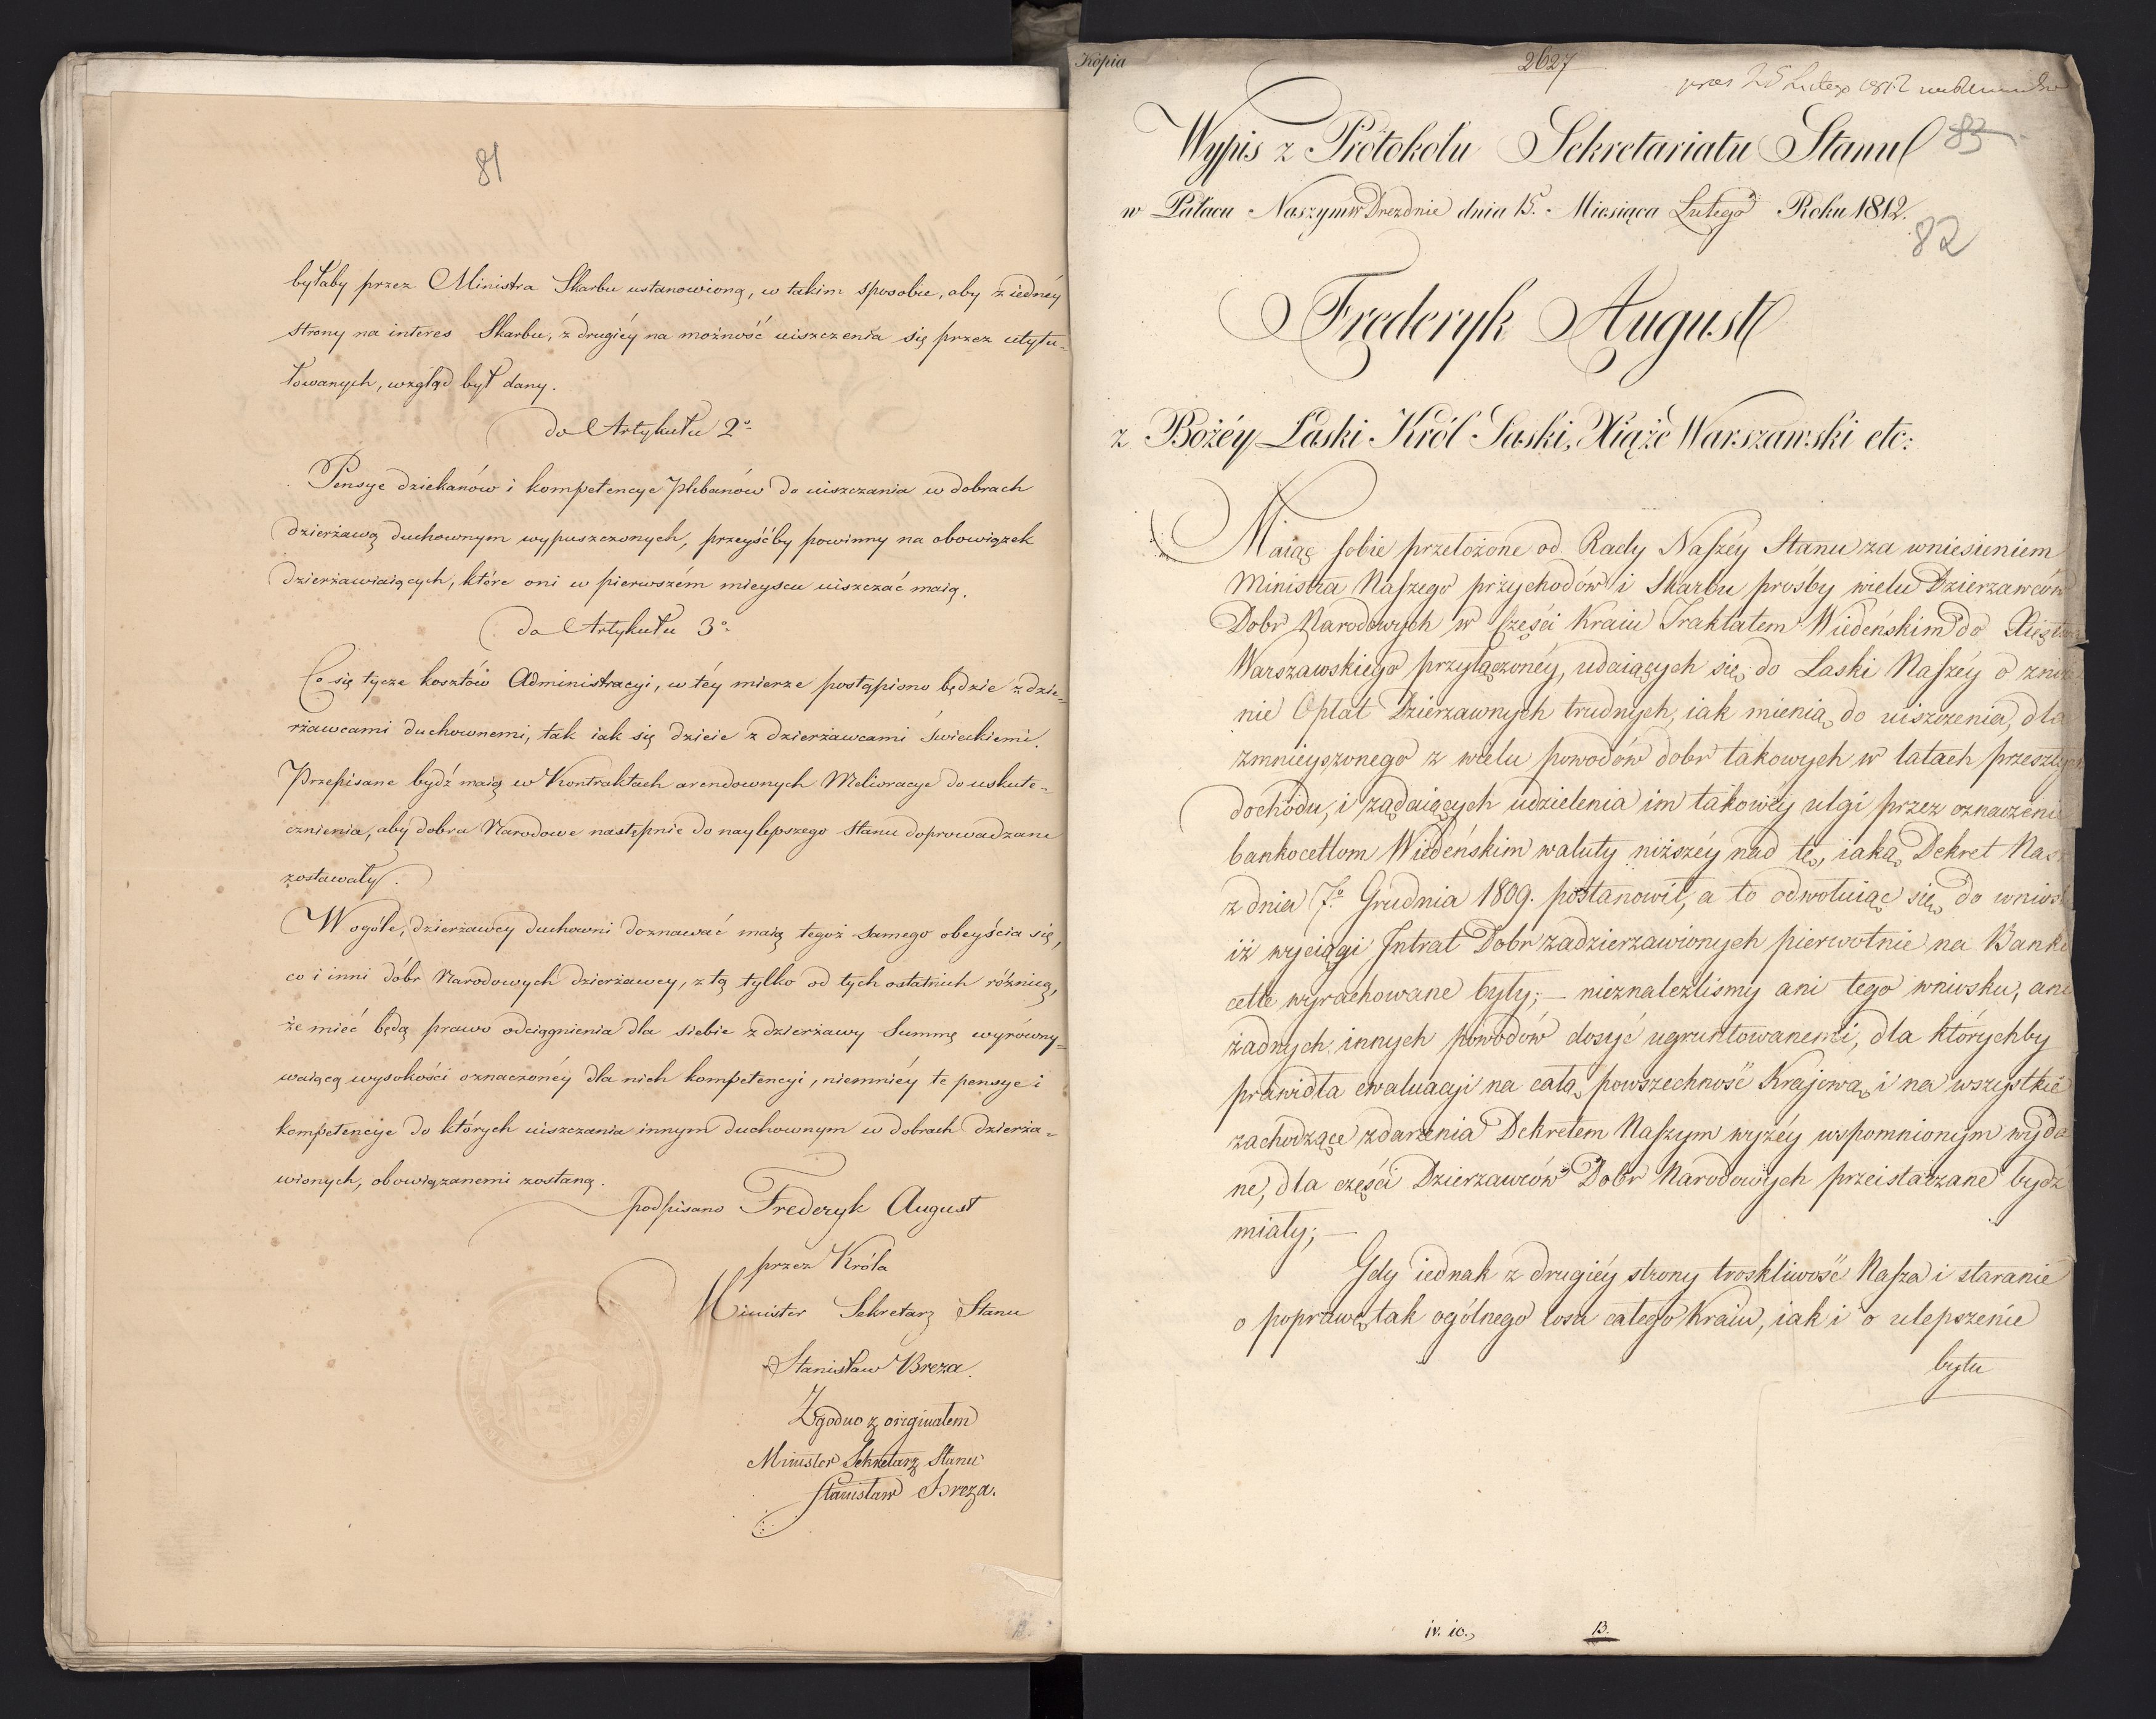 81
byłaby przez Ministra Skarbu ustanowioną, w takim sposobie, aby z iednéy
strony na interes Skarbu, z drugiéy na możność uiszczenia się przez utytu=
łowanych, wzgląd był dany.
do Artykułu 2º
Pensye dziekanów i kompetencye Plebanów do uiszczania w dobrach
dzierżawą duchownym wypuszczonych, przeyśćby powinny na obowiązek
dzierżawiaiących, które oni w pierwszém mieyscu uiszczać maią.
do Artykułu 3º
Co się tycze kosztów Administracyi, w téy mierze postąpiono będzie z dzie=
rżawcami duchownemi, tak iak się dzieie z dzierżawcami świeckiemi.
Przepisane bydź maią w Kontraktach arendownych Melioracye do uskute=
cznienia, aby dobra Narodowe następnie do naylepszego stanu doprowadzane
zostawały.
W ogóle, dzierżawcy duchowni doznawać maią tegoż samego obeyścia się,
co i inni dóbr Narodowych dzierżawcy, z tą tylko od tych ostatnich różnicą,
że mieć będą prawo odciągnienia dla siebie z dzierżawy Summę wyrówny=
waiącą wysokości oznaczonéy dla nich kompetencyi, niemniéy te pensye i
kompetencye do których uiszczania innym duchownym w dobrach dzierża=
wionych, obowiązanemi zostaną.
podpisano Frederyk August
przez Króla
Minister Sekretarz Stanu
Stanisław Breza.
Zgodno z originałem
Minister Sekretarz Stanu
Stanisław Breza.
Kopia
2627
pres 25 Lutego 1812
Wypis z Protokołu Sekretariatu Stanu
83
w Pałacu Naszym w Dreznie dnia 15. Miesiąca Lutego Roku 1812.
82
Frederyk August
z Bożéy Łaski Król Saski, Xiąże Warszawski etc:
Maiąc sobie przełożone od Rady Naszéy Stanu za wniesieniem
Ministra Naszego przychodów i Skarbu prośby wielu Dzierzawców
Dobr Narodowych w Części Kraiu Traktatem Wiedeńskim do
Warszawskiego przyłączonéy, udaiących się do Łaski Naszéy o
nie Opłat Dzierzawnych trudnych, iak mienią do uiszczenia, dla
zmnieyszonego z wielu powodów dobr takowych w latach
dochodu, i ządaiących udzielenia im takowéy ulgi przez
bankocetlom Wiedeńskim waluty niższéy nad tę, iaką Dekret
z dnia 7º Grudnia 1809. postanowił, a to odwołuiąc się do
iż wyciągi Intrat Dobr zadzierzawionych pierwotnie na
cetle wyrachowane były; — nieznalezlismy ani tego wniosku, ani
żadnych innych powodów dosyć ugruntowanemi, dla którychby
prawidła ewaluacyi na całą powszechność Krajową i na wszystkie
zachodzące zdarzenia Dekretem Naszym wyżéy wspomnionym wyda
ne, dla części Dzierzawców Dobr Narodowych przeistaczane bydź
miały; —
Gdy iednak z drugiéy strony troskliwość Nasza i staranie
o poprawę tak ogólnego losu całego Kraiu, iak i o ulepszenie
bytu
B.